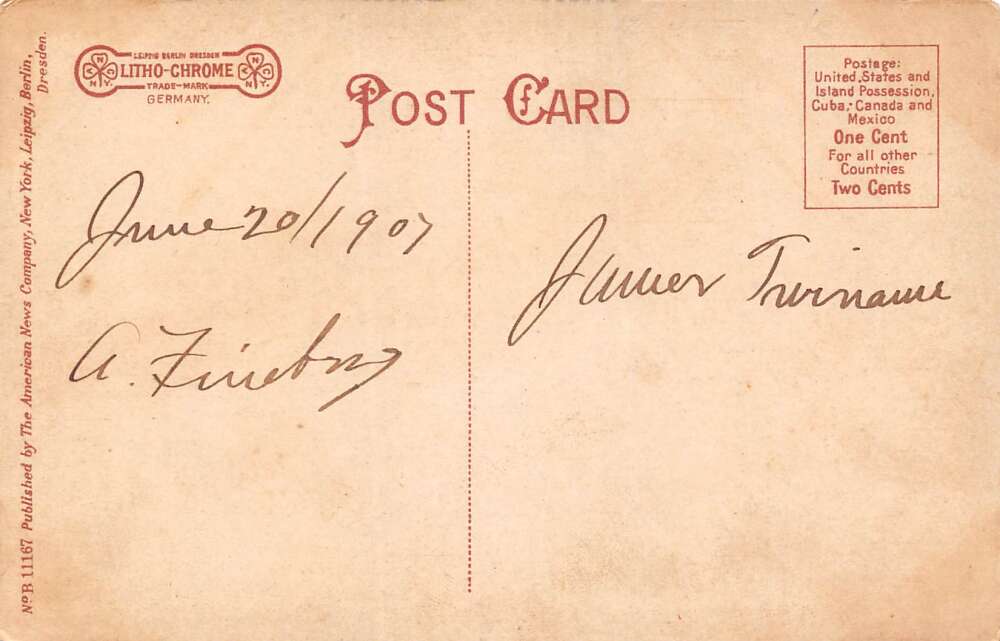 LEIPZIG BERLIN DRESDEN
LITHO-CHROME
TRADE-MARK
GERMANY.
POST CARD
Postage:
United States and
Island Possession,
Cuba, Canada and
Mexico
One Cent
For all other
Countries
Two Cents
June 20/1907
A.
James Twiname
No B 11167 Published by The American News Company, New York, Leipzig, Berlin,
Dresden.